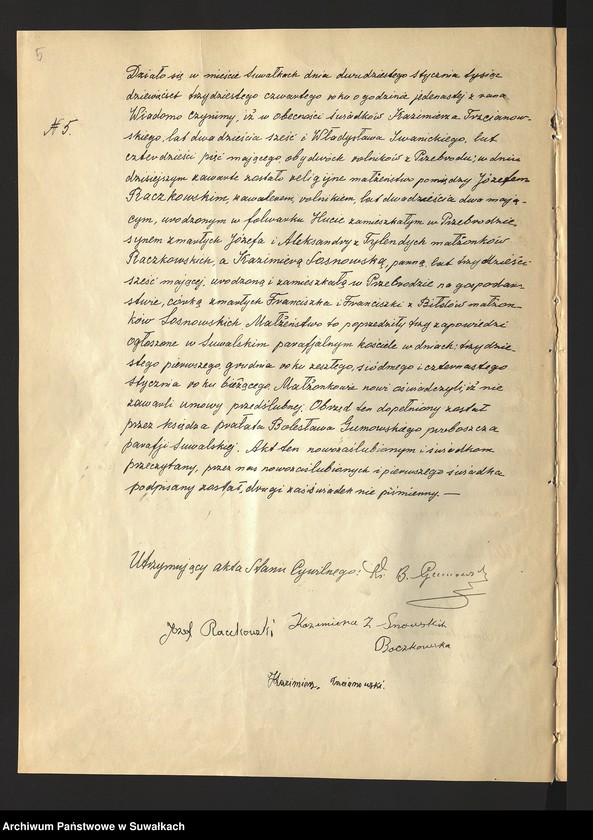 5
Działo się w mieście Suwałkach dnia dwudziestego stycznia tysiąc
dziewięćset trzydziestego czwartego roku o godzinie jedenastej z rana
№ 5.
Wiadomo czynimy, iż w obecności świadków Kazimierza Trzcianow-
skiego, lat dwadzieścia sześć i Władysława Iwanickiego, lat
czterdzieści pięć mającego, obydwóch rolników z Przebrodu; w dniu
dzisiejszym zawarte zostało religijne małżeństwo pomiędzy Józefem
Raczkowskim, kawalerem, rolnikiem, lat dwadzieścia dwa mają-
cym, urodzonym w folwarku Hucie zamieszkałym w Przebrodzie
synem zmarłych Józefa i Aleksandry z małżonków
Raczkowskich, a Kazimierą Sosnowską, panną, lat trzydzieści
sześć mającej, urodzoną i zamieszkałą w Przebrodzie na gospodar-
stwie, córką zmarłych Franciszka i Franciszki z małżon-
ków Sosnowskich. Małżeństwo to poprzedziły trzy zapowiedzi
ogłoszone w Suwalskim parafjalnym kościele w dniach: trzydzie-
stego pierwszego, grudnia roku zeszłego, siódmego i czternastego
stycznia roku bieżącego. Małżonkowie nowi oświadczyli, iż nie
zawarli umowy przedślubnej. Obrzęd ten dopełniony został
przez księdza prałata Bolesława Gumowskiego proboszcza
parafji Suwalskiej. Akt ten nowozaślubionym i świadkom
przeczytany, przez nas nowozaślubionych i pierwszego świadka
podpisany został, drugi zaś świadek nie piśmienny. —
Utrzymujący akta Stanu Cywilnego: Ks. B. Gumowski
Józef Raczkowski
Kazimiera Z
Raczkowska
Kazimierz Trzcianowski.
Archiwum Państwowe w Suwałkach